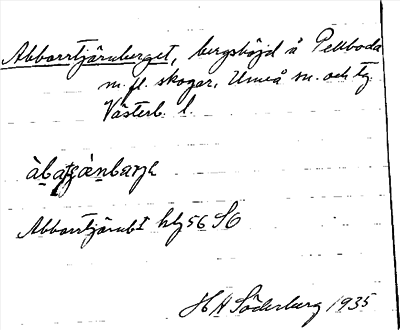 Abborrtjärnberget, bergshöjd å Pellboda
m. fl. skogar, Umeå sn. och tg.
Västerb. l.
Abborrtjärnb I hbj 56 SO
H A Söderberg 1935